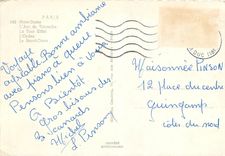 PARIS
Notre-Dame
L'Arc de Triomphe
La Tour Eiffel
Voyage
agréable Bonne ambiance
avec piano à queue
Pensons bien à vous
G Parientol
Gros bisous des
3 Vacanciers
Michel
Pinson
Maisonnée PINSON
12 place du centre
Guingamp
côtes du nord